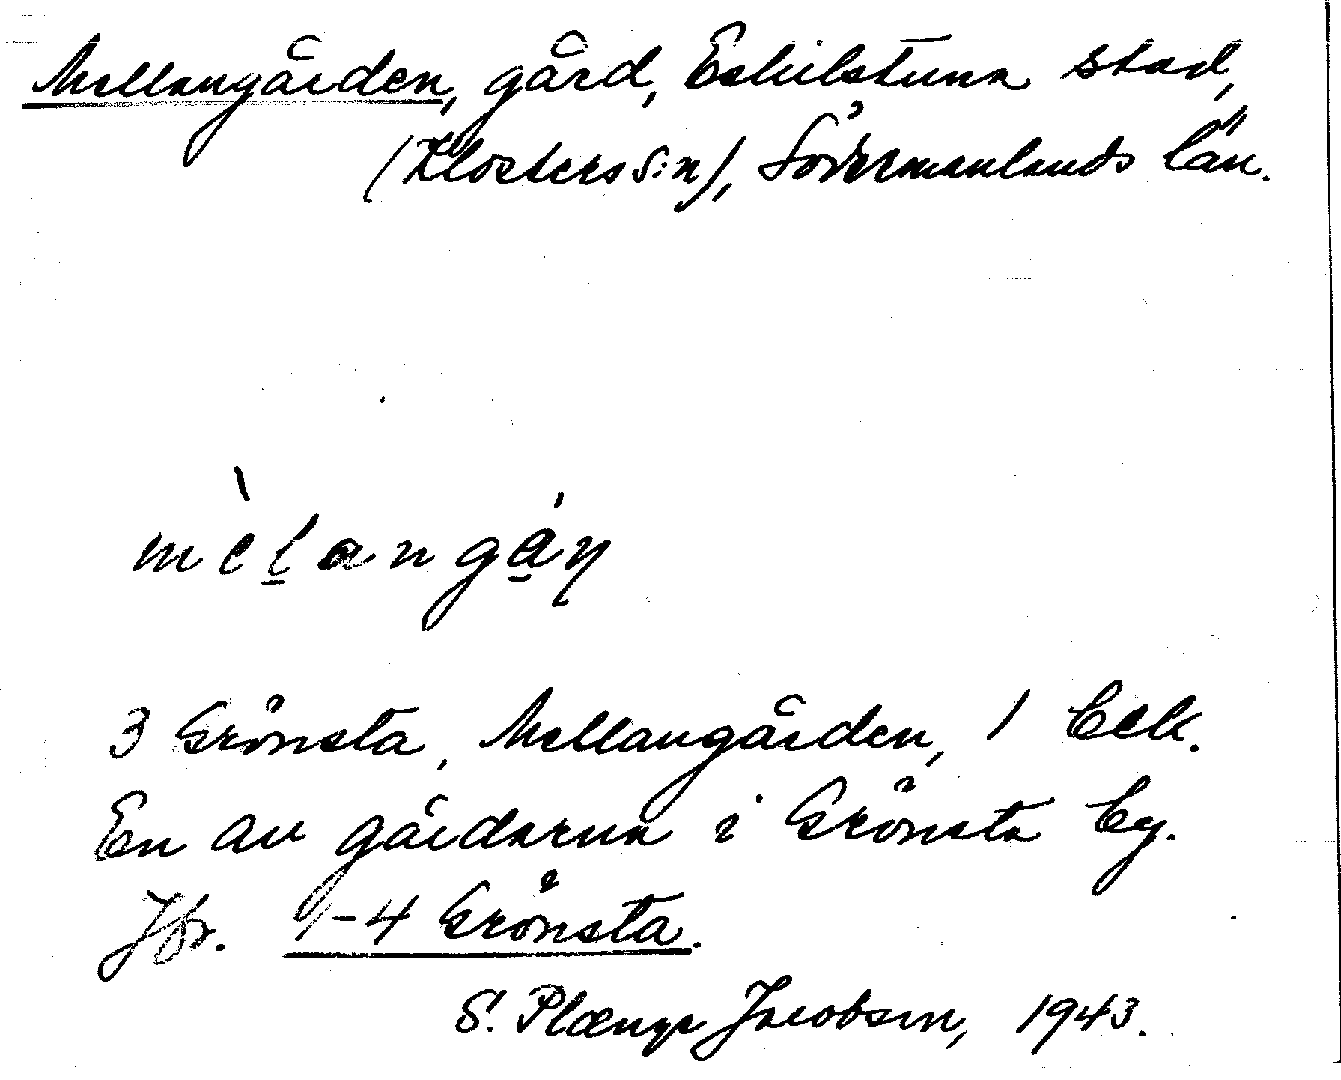 Mellangården, gård, Eskilstuna stad,
(Klosters s:n), Södermanlands län.
mèlangạ́ṇ
3 Grönsta, Mellangården, 1 belk.
En av gårdarna i Grönsta by.
Jfr. 1-4 Grönsta.
S. Plænge Jacobson, 1943.